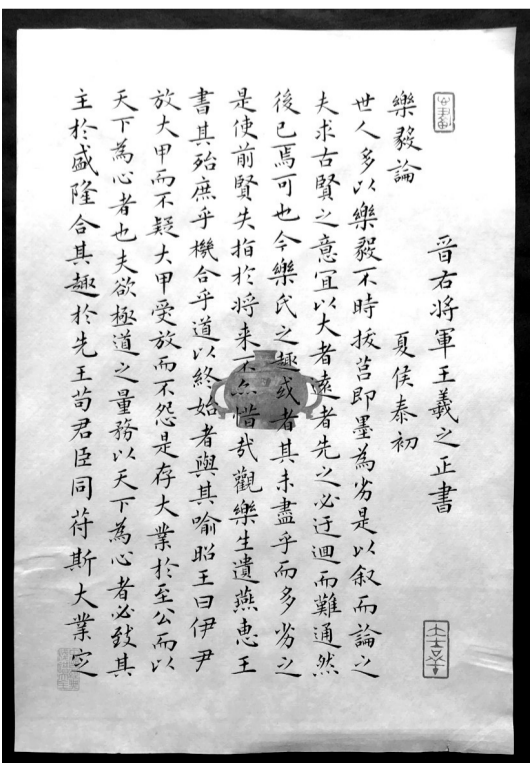 晋右将軍王羲之正書
樂毅論 夏侯泰初
世人多以樂毅不時拔莒即墨為劣是以叙而論之
夫求古賢之意宜以大者遠者先之必迂迴而難通然
後已焉可也今樂氏之趣或者其未盡乎而多劣之
是使前賢失指於将来不亦惜哉觀樂生遺燕惠王
書其殆庶乎機合乎道以終始者與其喻昭王曰伊尹
放大甲而不疑大甲受放而不怨是存大業於至公而以
天下為心者也夫欲極道之量務以天下為心者必致其
主於盛隆合其趣於先王苟君臣同荷斯大業定